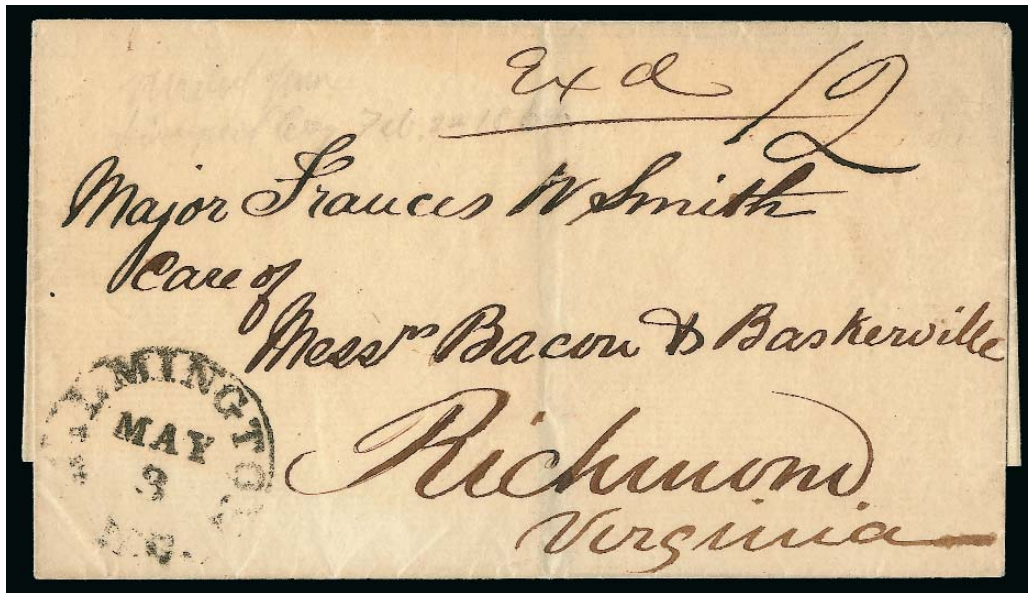 Exd 12
Feb.
Major Frances W Smith
Care of
Messrs Bacon & Baskerville
Richmond
Virginia
WILMINGTON
MAY
3
N.C.